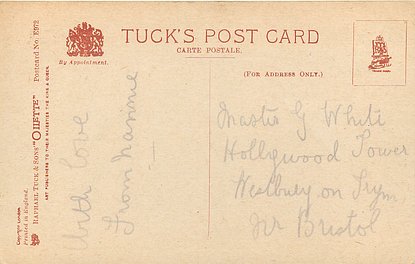 TUCK'S POST CARD
CARTE POSTALE.
By Appointment.
(FOR ADDRESS ONLY.)
TRADE MARK
With love
from Nannie
Master G White
Hollywood Tower
Westbury on Trym
Nr Bristol
Postcard No. 8972
RAPHAEL TUCK & SONS' "OILETTE"
ART PUBLISHERS TO THEIR MAJESTIES THE KING & QUEEN
Copyright London
Printed in England.